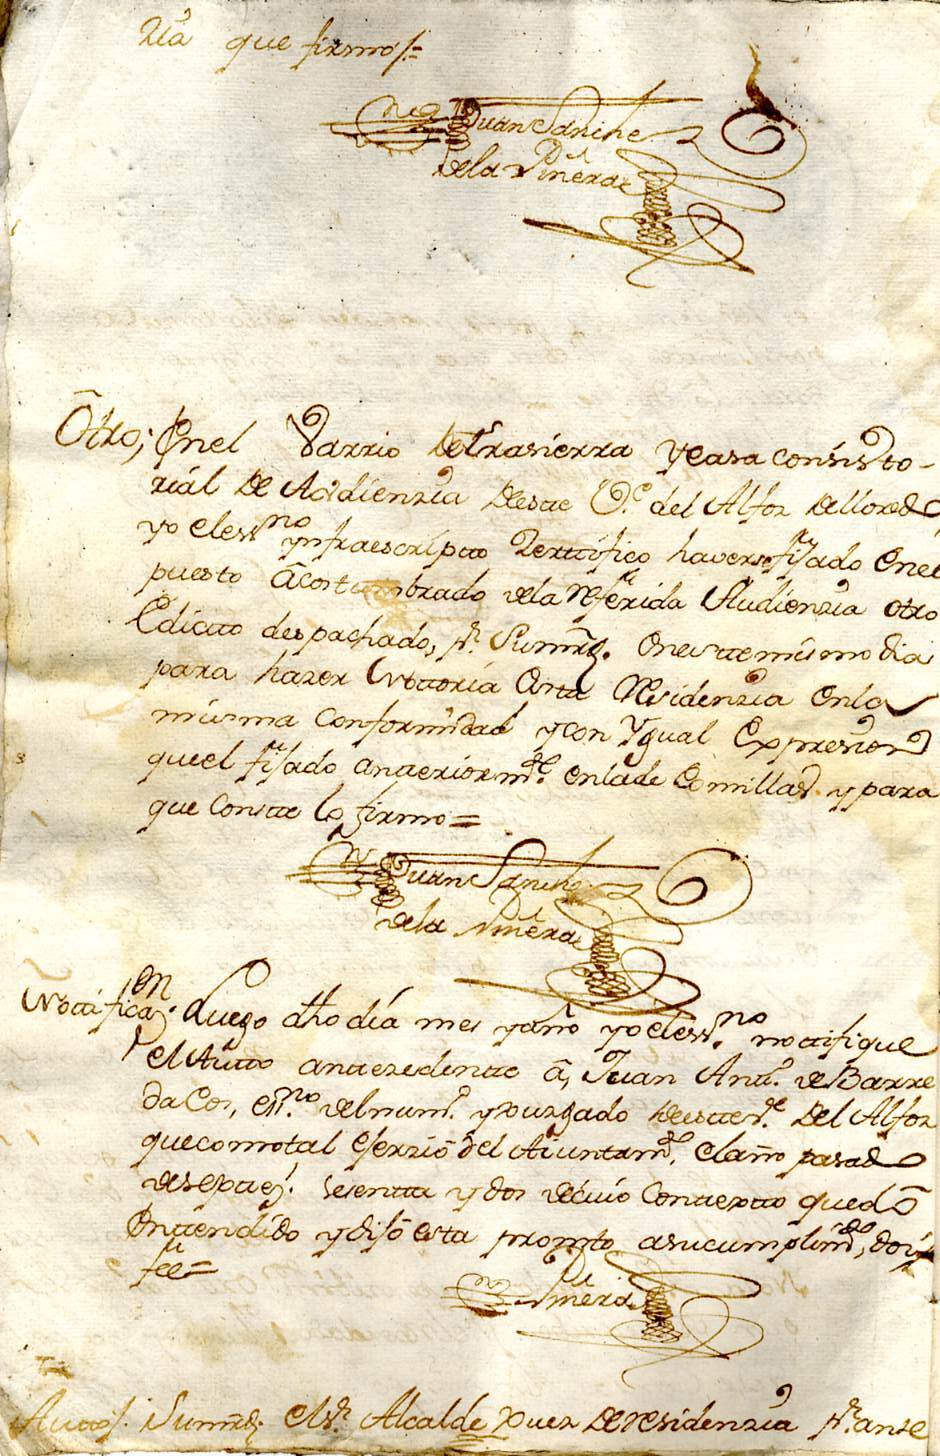 que firmo=
Juan Sanche
de la Vinera
Otro; En el Varrio de Trasierra y casa consisto-
rial de Audienzia de este Vᵉ. del Alfoz de lloredo
yo el essⁿᵒ ynfraescripto Zertifico haverse fijado en el
puesto acostumbrado de la Referida Audienzia otro
Edicto despachado, pʳ. Sumrd. en este mismo dia
para hazer Nottoria esta Residenzia en la
misma conformidad y con Ygual Expresion
que el fijado anteriormᵗᵉ en la de Comillas y para
que conste lo firmo =
Juan Sanche
de la Vinera
Nottificaᵒⁿ. Luego dho dia mes y año yo el essⁿᵒ. nottifique
el Autto antezedente a, Juan Antᵒ. de Barre
da Cos, esⁿᵒ del numᵒ. y Juzgado de este Vᵉ del Alfoz
que como tal ejerzió el del Aiuntamᵗᵒ. el año pasado
de settezˢ. sesentta y dos de cuio contexto quedó
Entendido y dijo esta prompto a su cumplimᵗᵒ, doy
fee=
Vinera
Autto. Sumrd. el Sʳ. Alcalde Juez de residenzia pʳ. ante